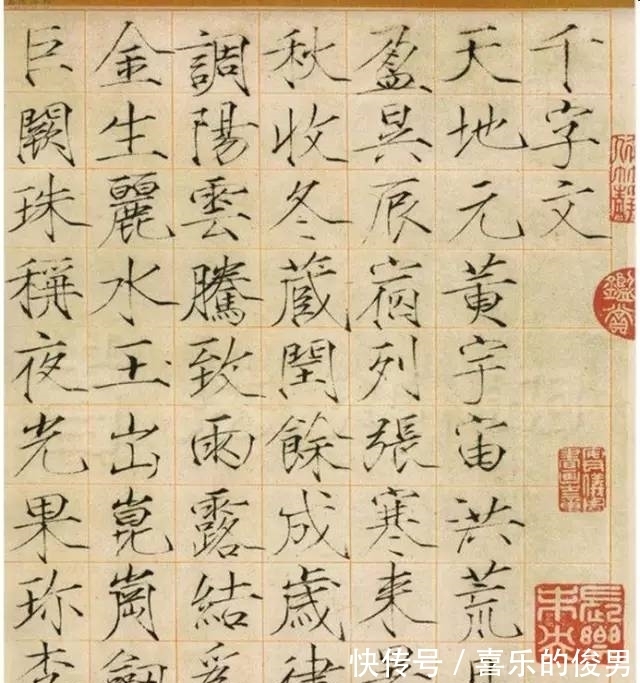 千字文
天地元黄宇宙洪荒
盈昃辰宿列張寒来
秋收冬蔵閏餘成歲律
調陽雲騰致雨露結爲
金生麗水玉出崑崗劍
巨闕珠稱夜光果珎李
鑑賞
快传号 / 喜乐的俊男